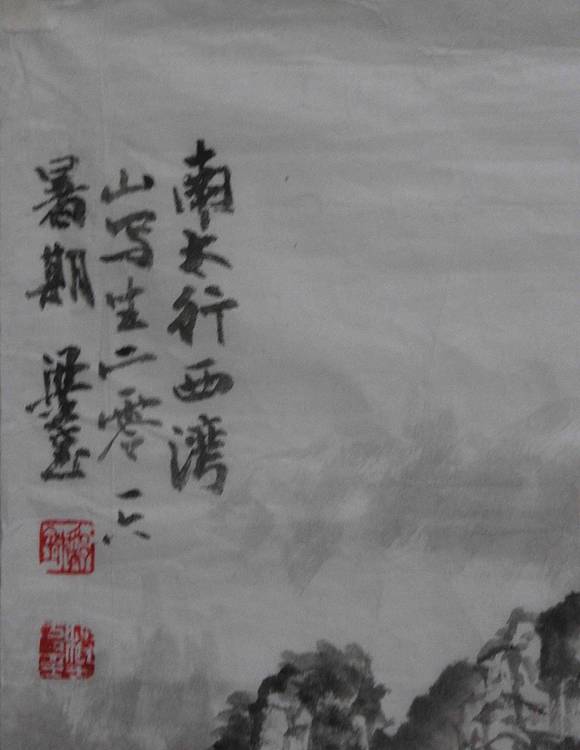 南太行西湾
山写生二零一六
暑期 梁